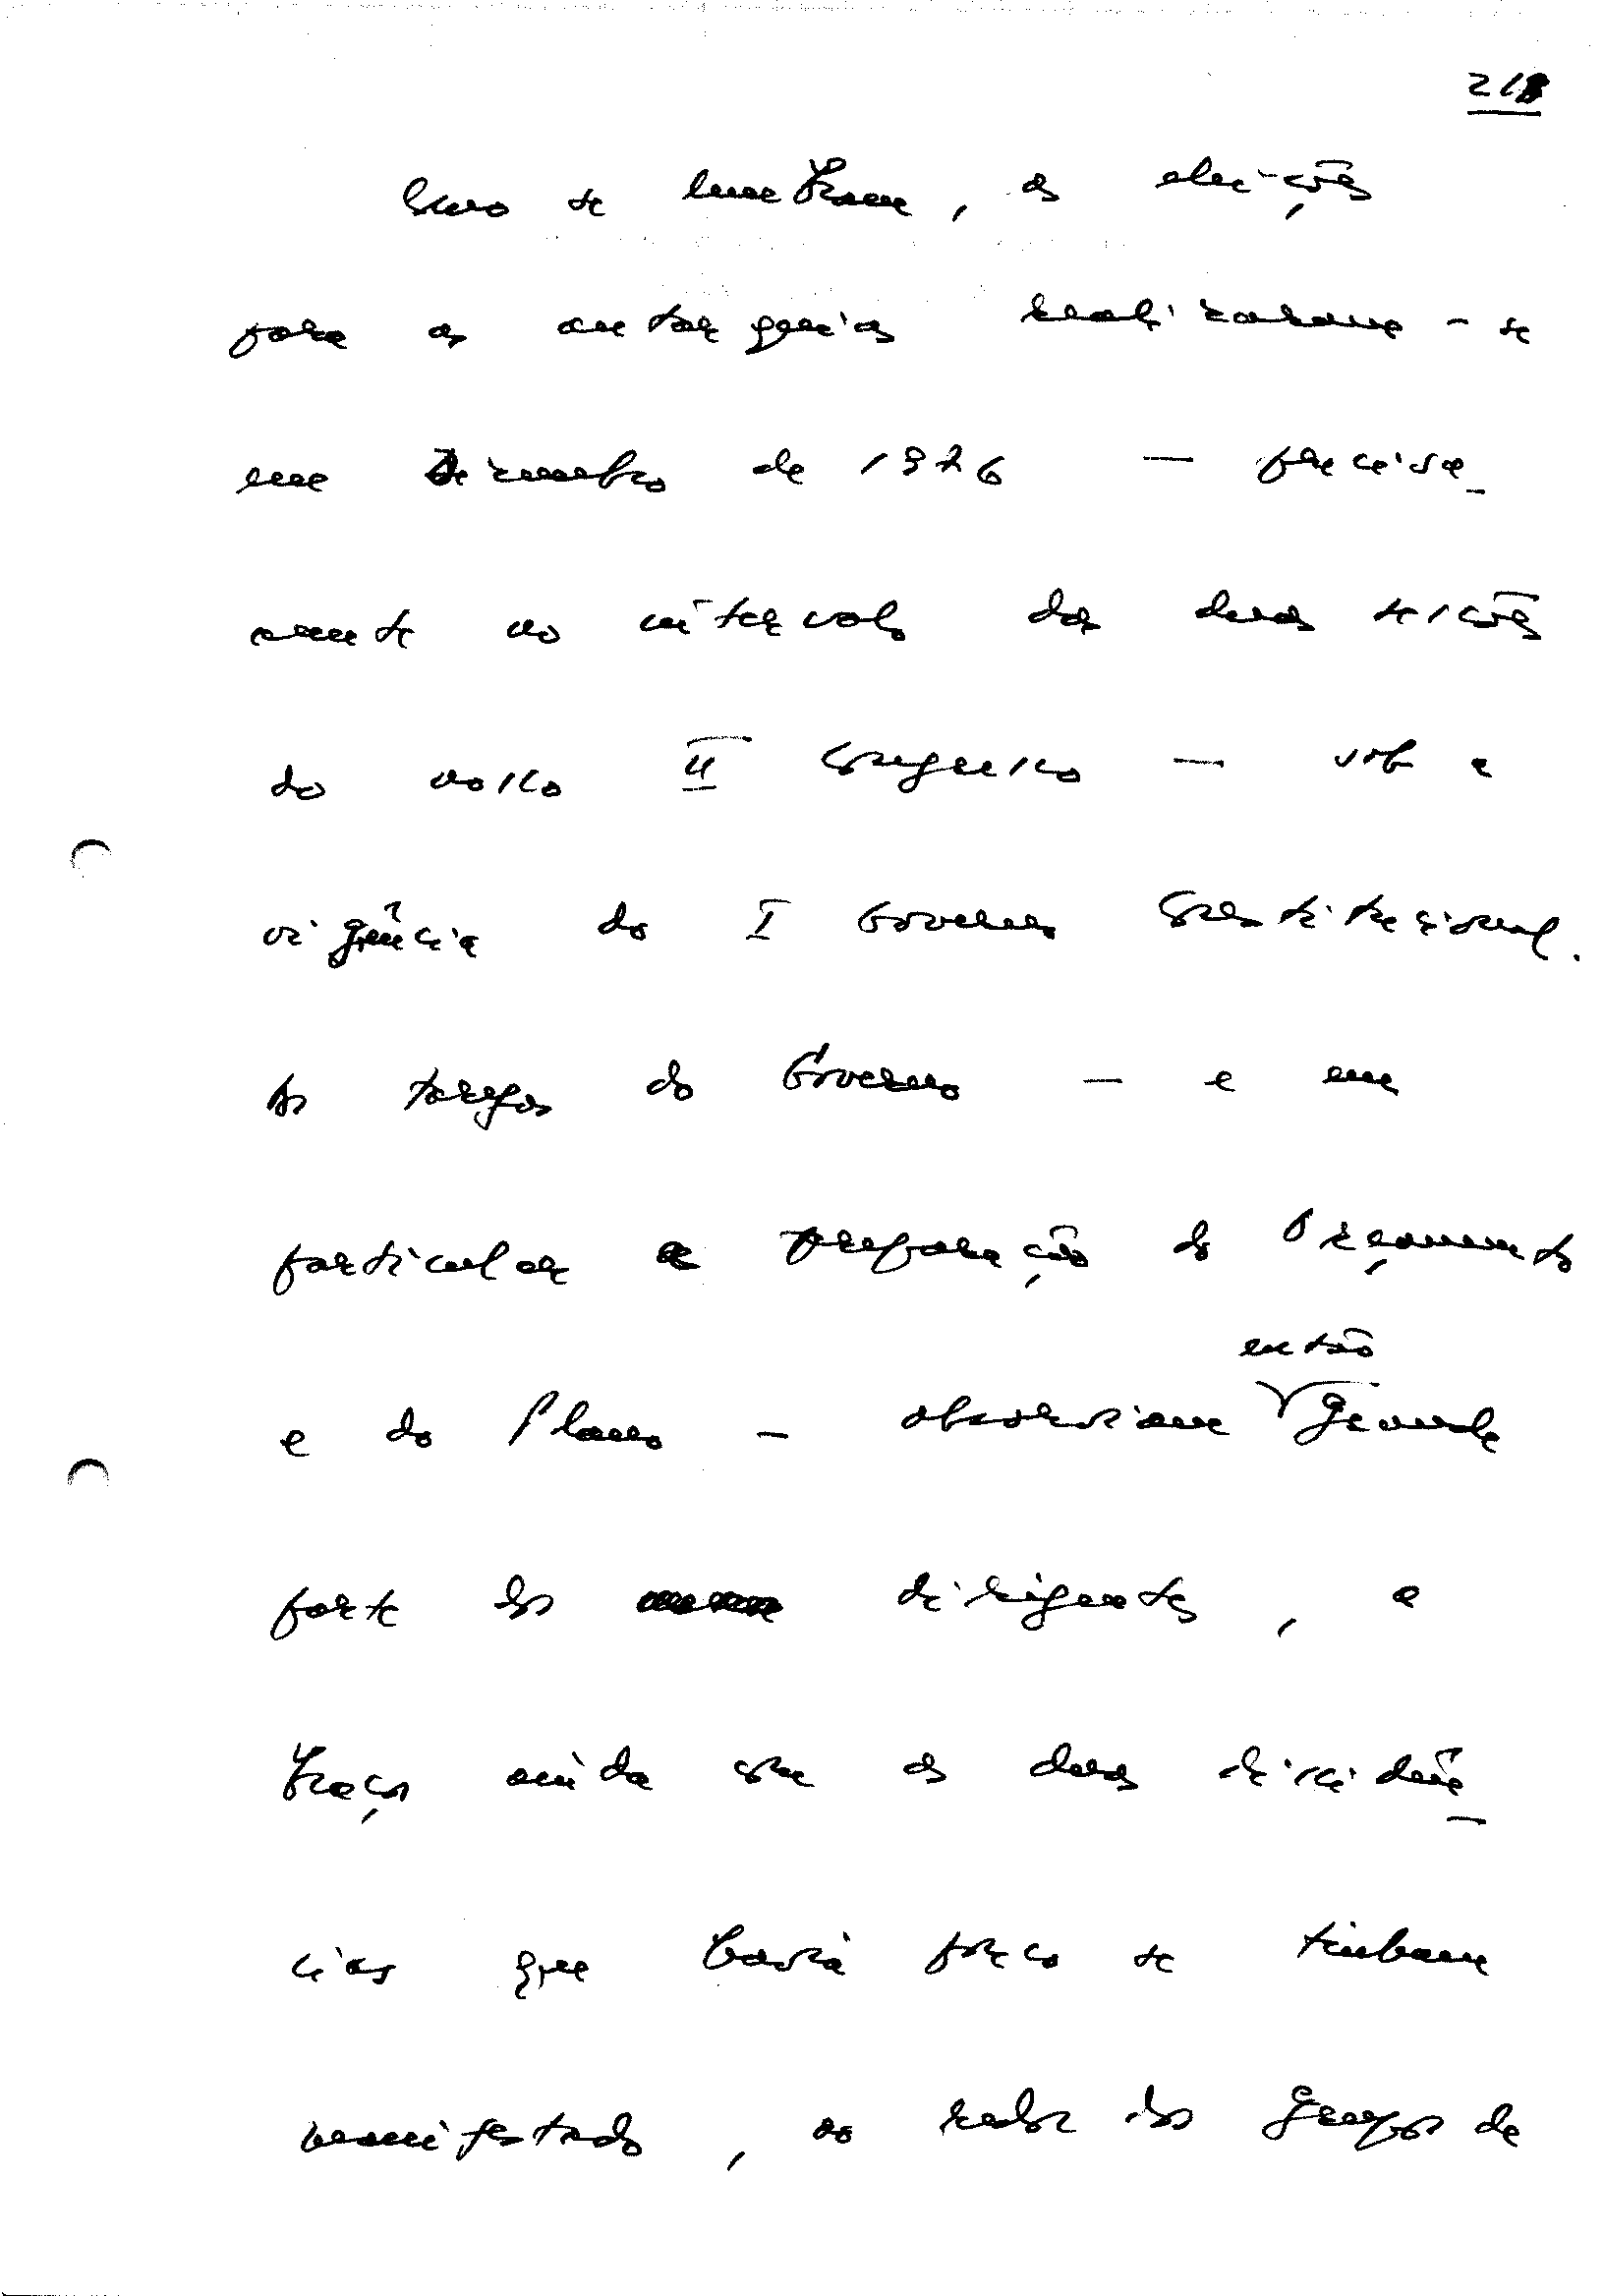 218
Como se lembram, as elei-ções
para as autarquias realizaram-se
em Dezembro de 1976 — precisa-
mente no intervalo das duas sessões
do nosso II Congresso — sob a
vigência do I Governo Constitucional.
As tarefas do Governo — e em
particular a preparação do Orçamento
então
e do Plano — absorviam grande
parte dos dirigentes, a
braços ainda com as duas dissidên-
cias que havia pouco se tinham
manifestado, ao redor dos grupos de